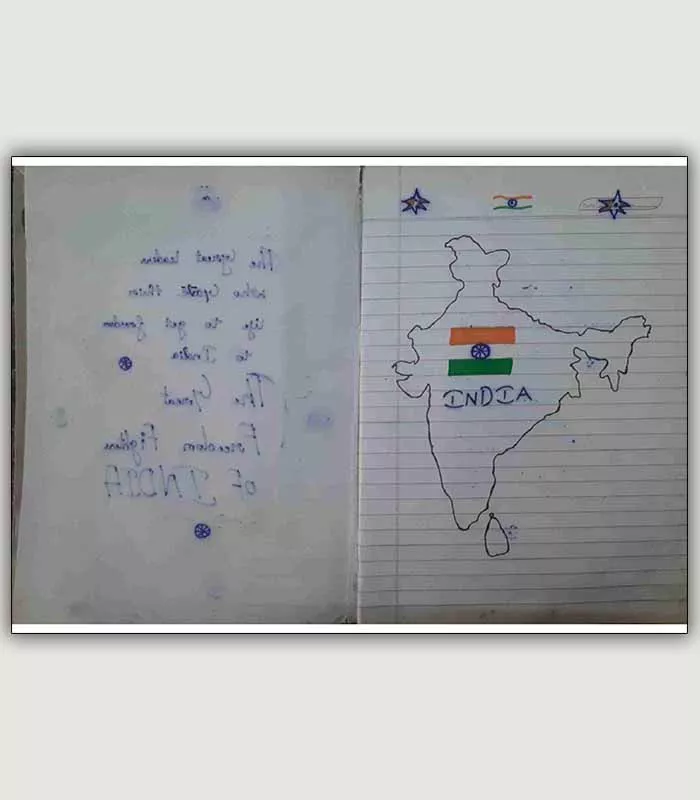 The Great leaders
who their
life to get freedom
to India
The Great
Freedom Fighters
of INDIA
INDIA